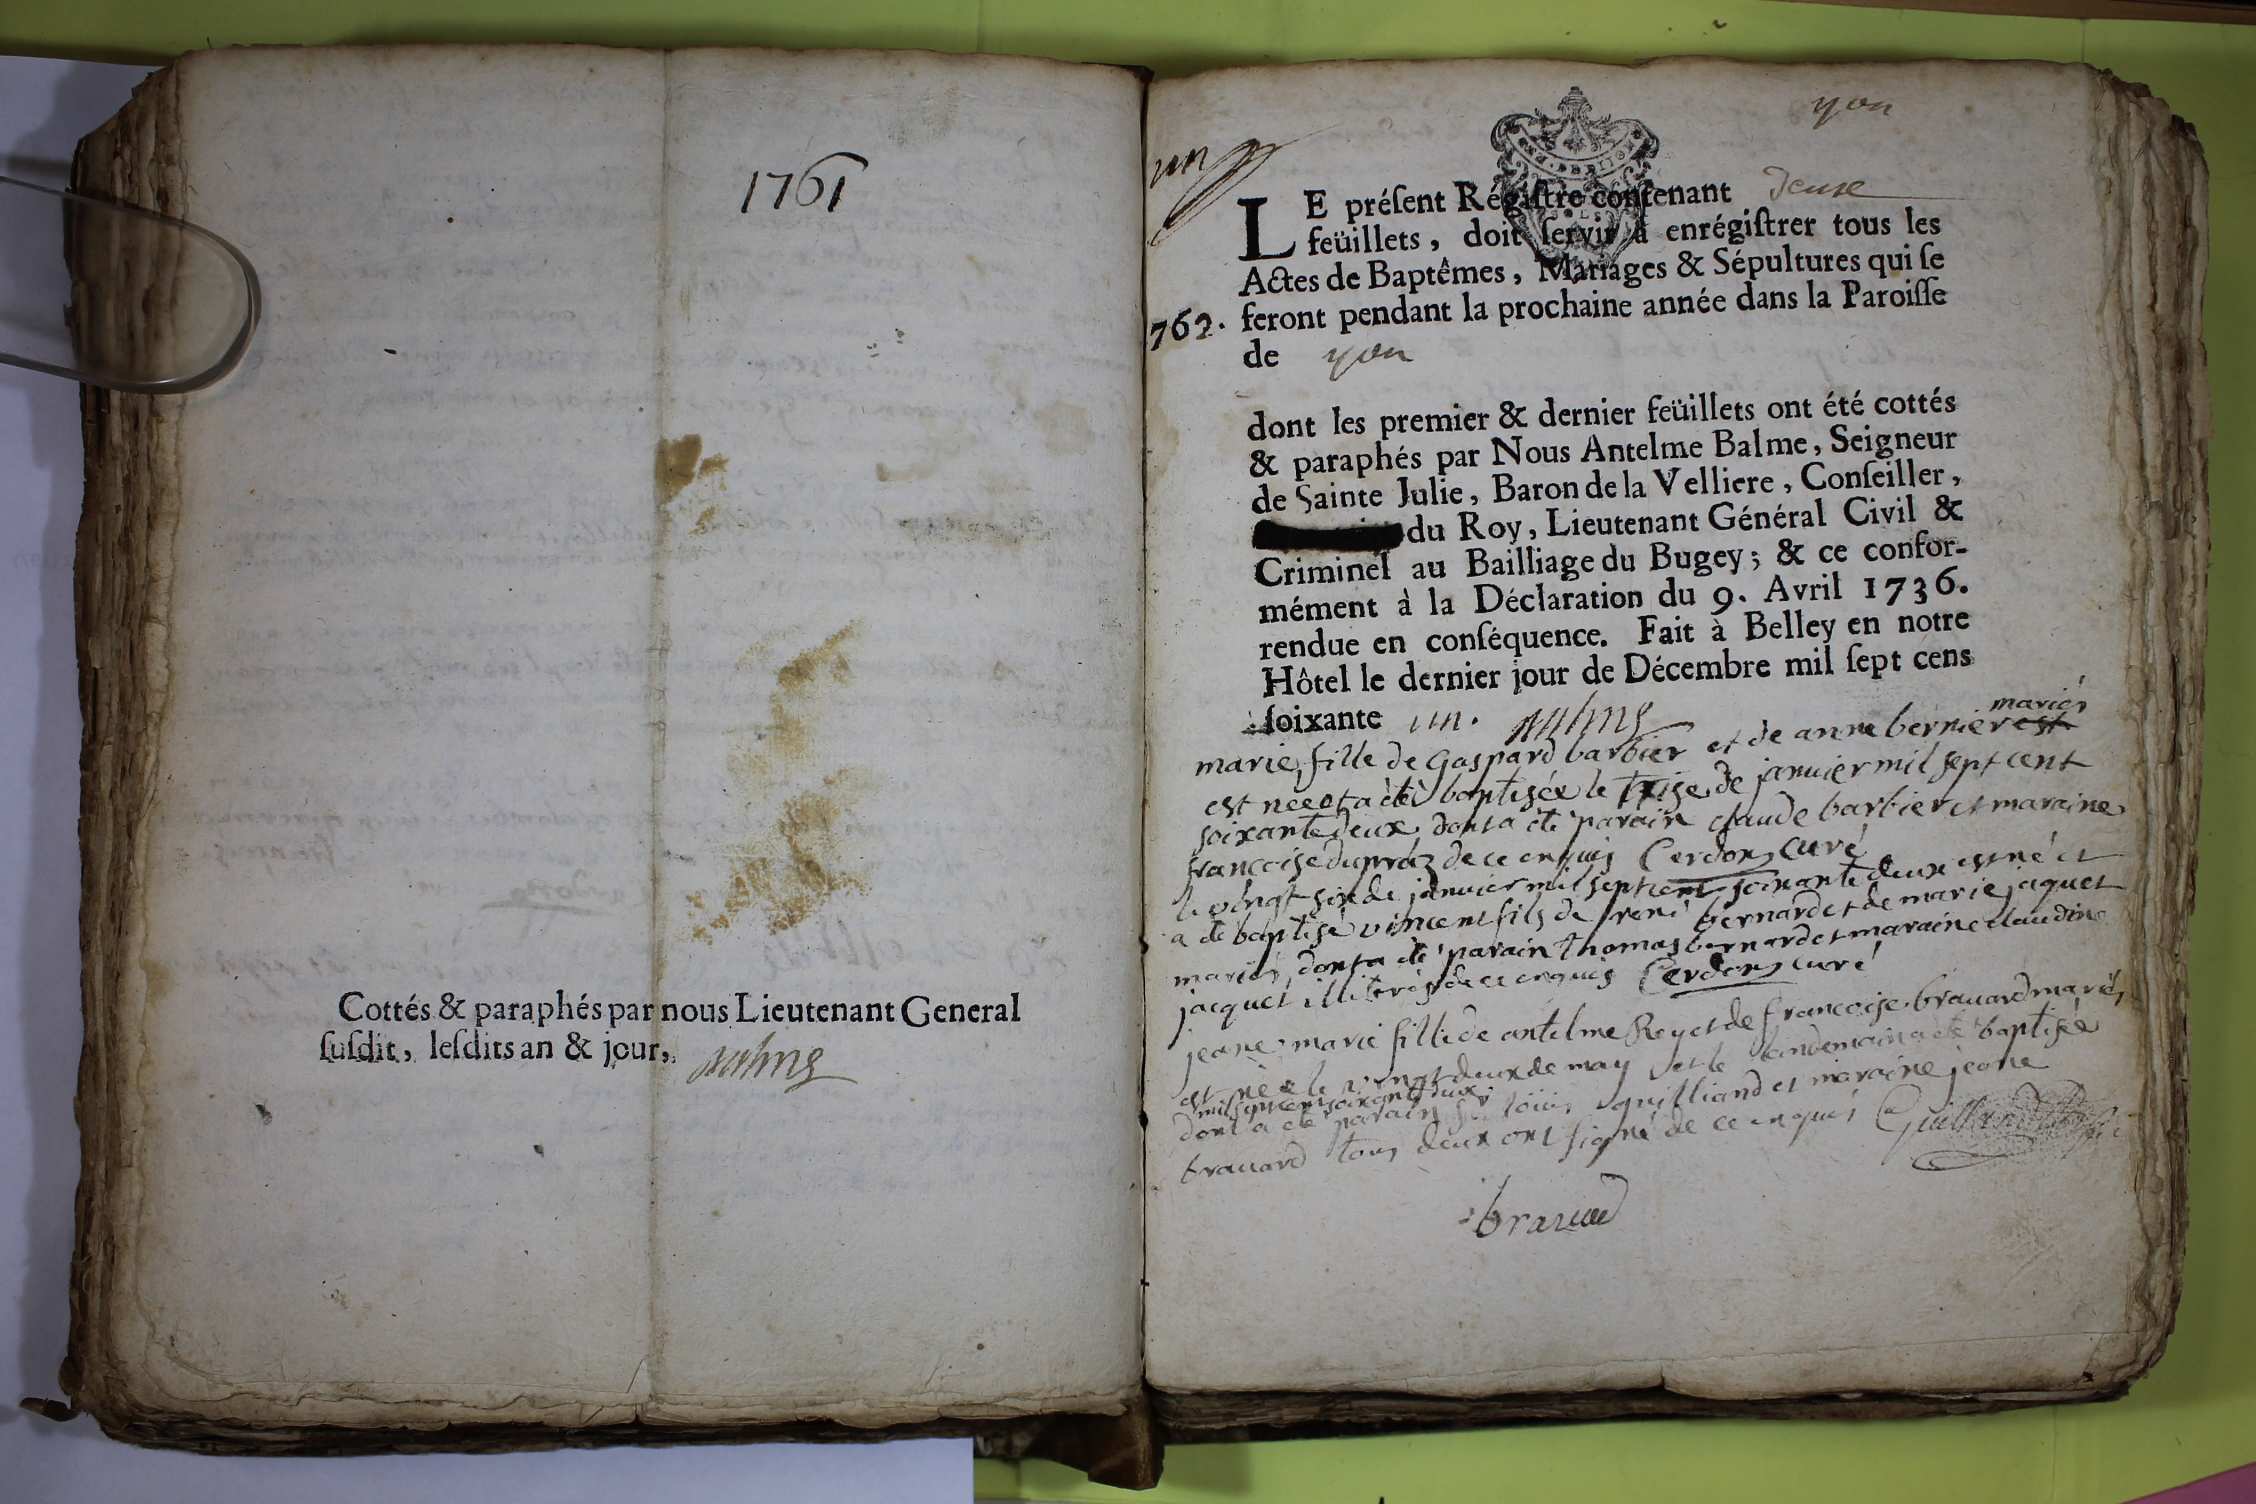 1761
Cottés & paraphés par nous Lieutenant General
ſuſdit, leſdits an & jour,
yon
un
LE préſent Régiſtre contenant deuze
feüillets, doit ſervir à enrégiſtrer tous les
Actes de Baptêmes, Mariages & Sépultures qui ſe
762. feront pendant la prochaine année dans la Paroiſſe
de yon
dont les premier & dernier feüillets ont été cottés
& paraphés par Nous Antelme Balme, Seigneur
de Sainte Julie, Baron de la Velliere, Conſeiller,
du Roy, Lieutenant Général Civil &
Criminel au Bailliage du Bugey; & ce confor-
mément à la Déclaration du 9. Avril 1736.
rendue en conſéquence. Fait à Belley en notre
Hôtel le dernier jour de Décembre mil ſept cens
ſoixante un.
mariés
marie fille de Gaspard barbier et de anne bernier est
est nee et a été baptisée le treise de janvier mil sept cent
soixante deux dont a été parain claude barbier et maraine
francoise dupraz de ce enquis Cerdon curé
le vingt six de janvier mil sept cent soixante deux est né et
a été baptisé vincent fils de rené bernard et de marie jaquet
mariés dont a été parain thomas bernard et maraine claudine
jacquet illiterés de ce enquis Cerdon curé
jeane marie fille de antelme Rey et de francoise bravard mariés
est née le vingt deux de may et le lendemain a été baptisée
mil sept cent soixante deux
dont a été parain louis guilliand et maraine jeane
bravard tous deux ont signé de ce enquis
bravard